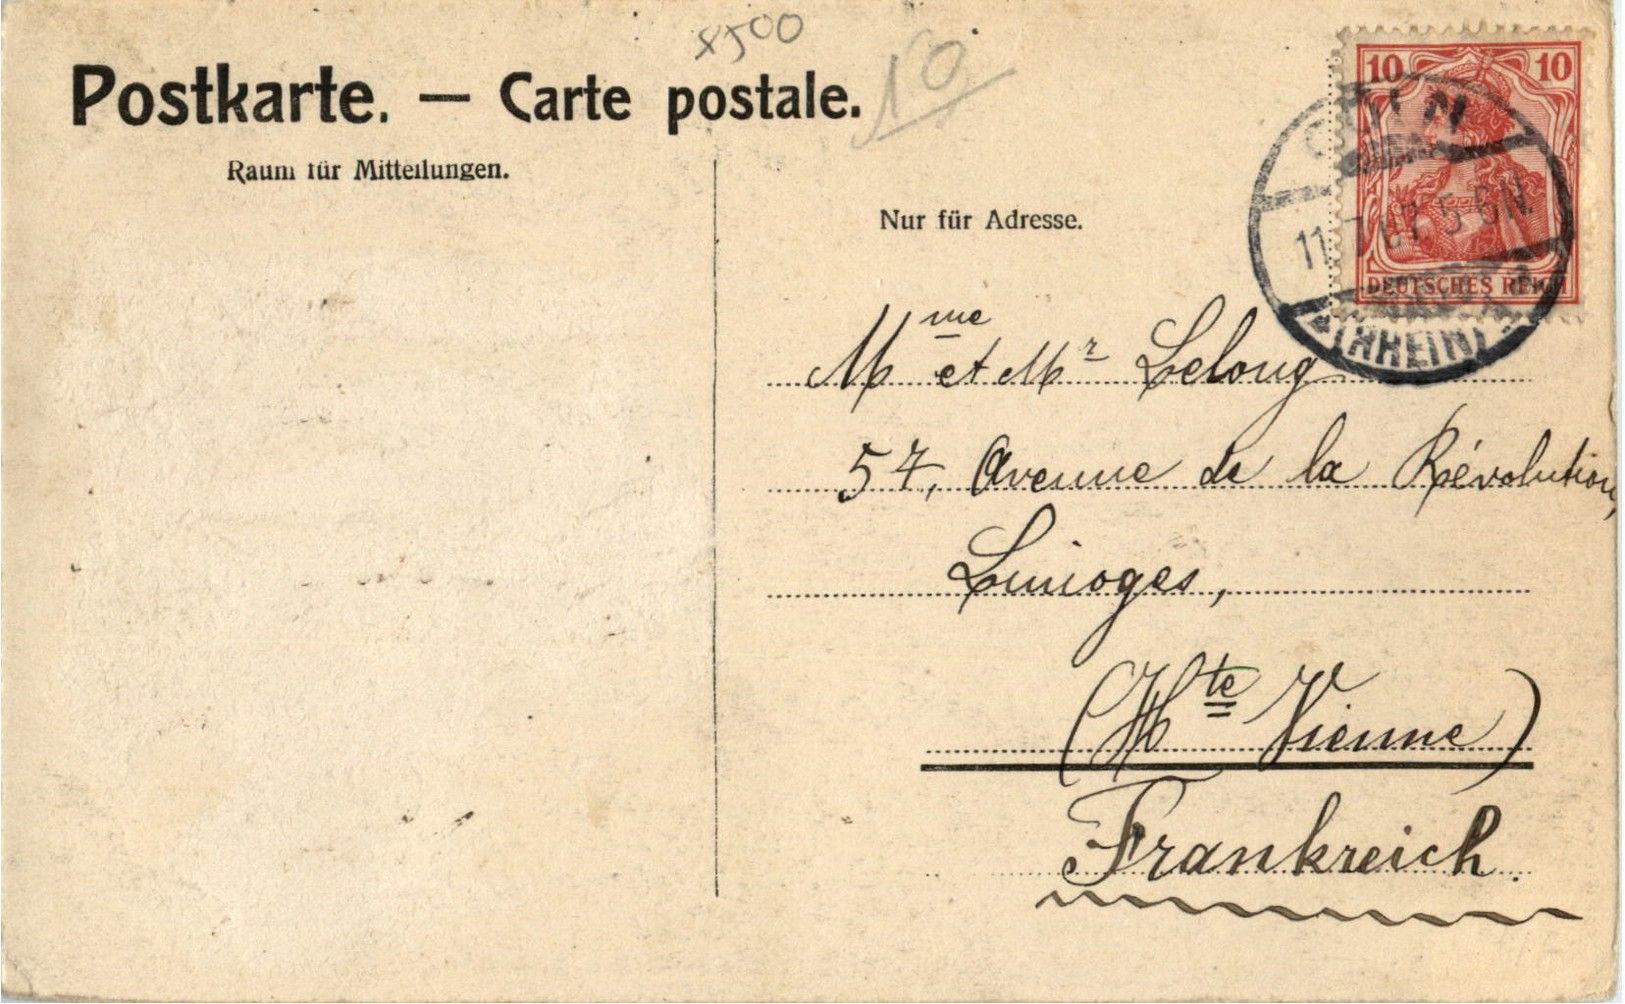 8500
10
Postkarte. — Carte postale.
Raum für Mitteilungen.
Nur für Adresse.
10 10
DEUTSCHES REICH
CÖLN
11. 7. 07. 5-6 N.
(RHEIN)
Mme et Mr Lelong
57, Avenue de la Révolution,
Limoges,
(Hte Vienne)
Frankreich.